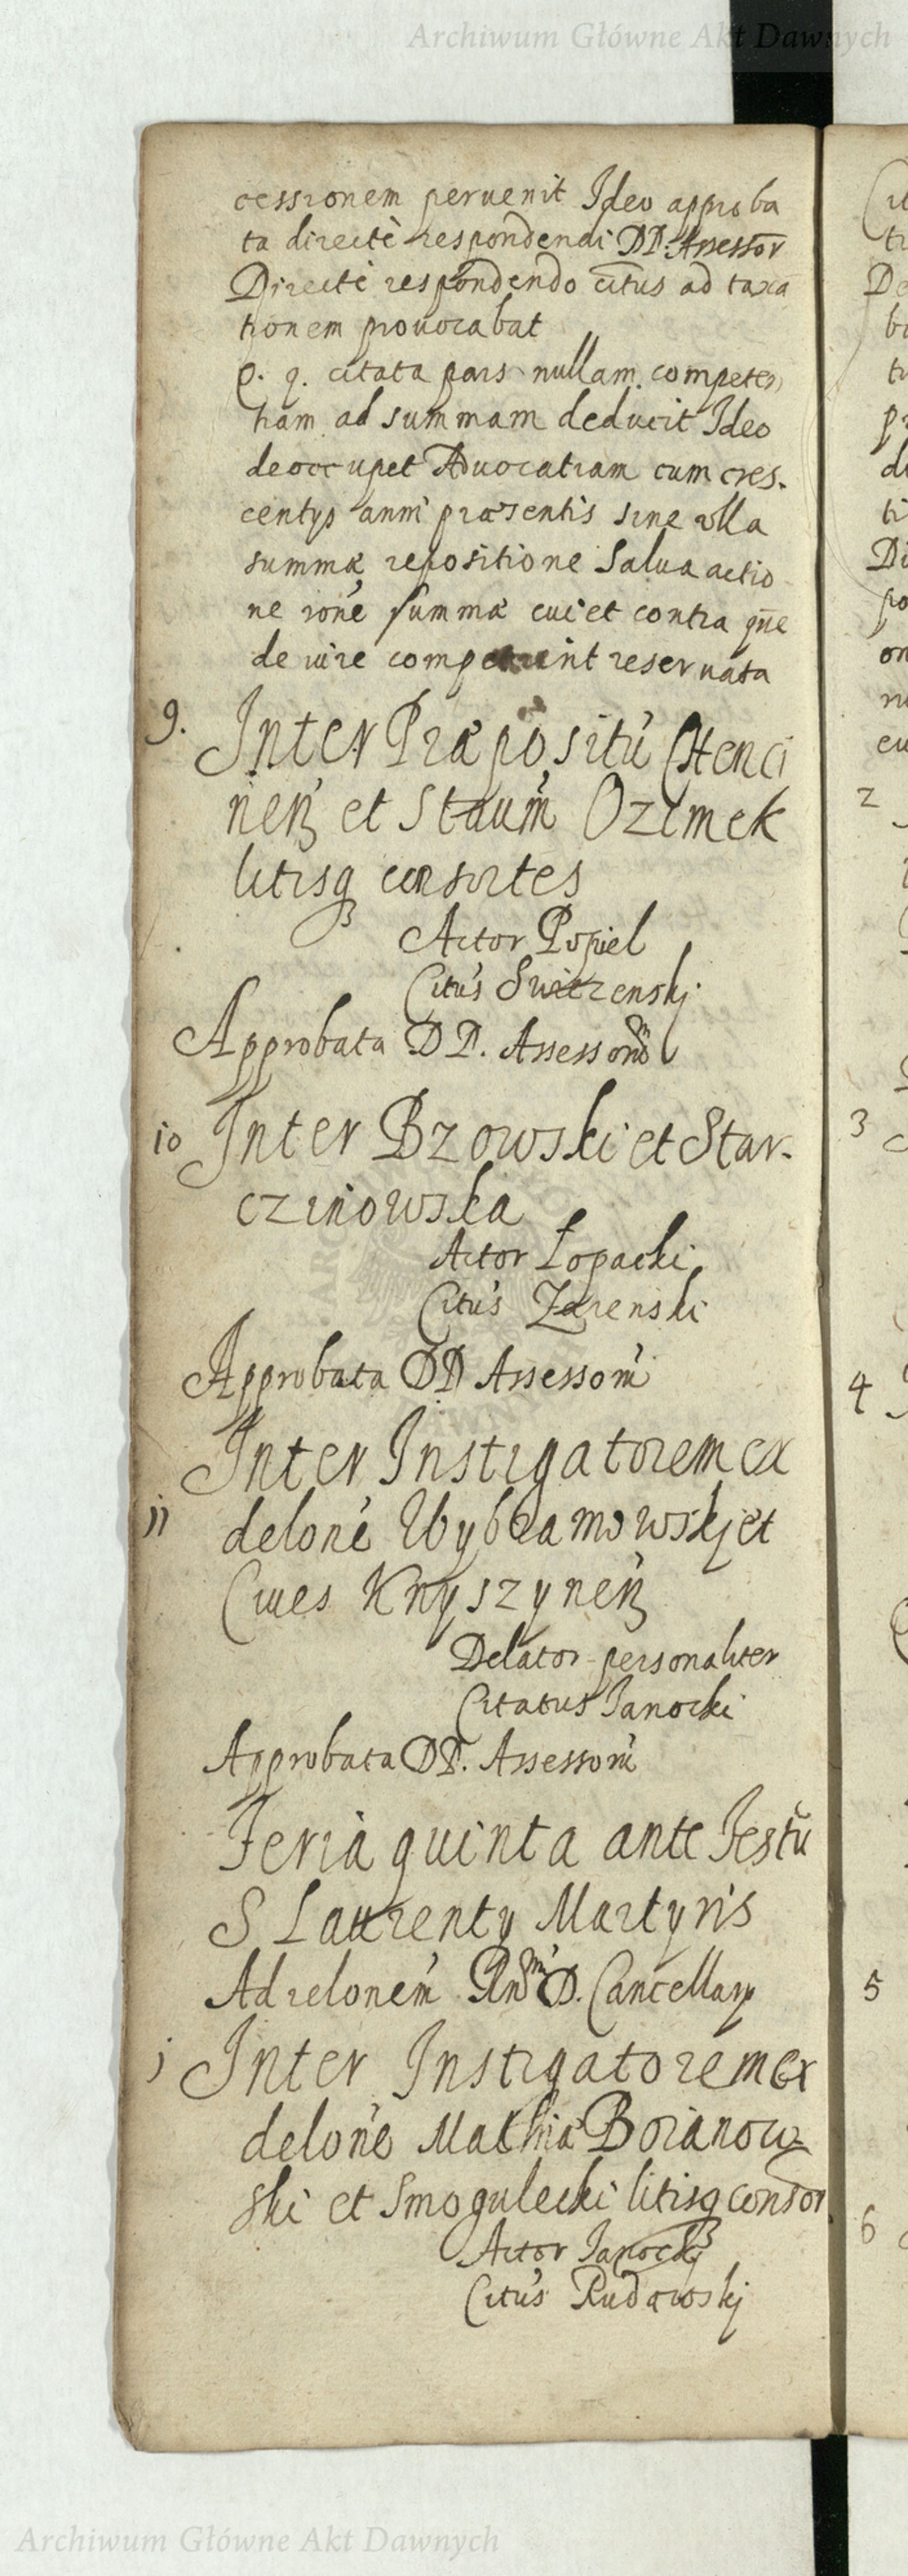 Archiwum Główne Akt Dawnych
cessionem peruenit Ideo approba
ta directè respondendi DD. Assessor
Directè respondendo citus ad taxa
tionem prouocabat
P. q. citata pars nullam competen
tiam ad summam deducit Ideo
deoccupet Aduocatiam cum cres-
centys anni præsentis sine vlla
summæ repositione Salua actio
ne rone summæ cui et contra que
de iure competunt reseruata
9. Inter Præpositu Chenci
nen et Staum Ozimek
litisq consortes
Actor Popiel
Citus
Approbata DD. Assessorum
10 Inter Bzowski et Star-
czinowska
Actor Łopacki
Citus Zarenski
Approbata DD Assessorm
Inter Instigatorem ex
11 delone Wybramowskj et
Ciues Knyszynen
Delator personaliter
Citatus Janocki
Approbata DD. Assessorm
Feria quinta ante Festu
S Laurenty Martyris
Ad relonem D. Cancellary
1 Inter Instigatorem ex
delone Mathiæ Boianow-
ski et Smogulecki litisq consor
Actor Janockj
Citus Rudawskj
2
3
4
5
6
Archiwum Główne Akt Dawnych